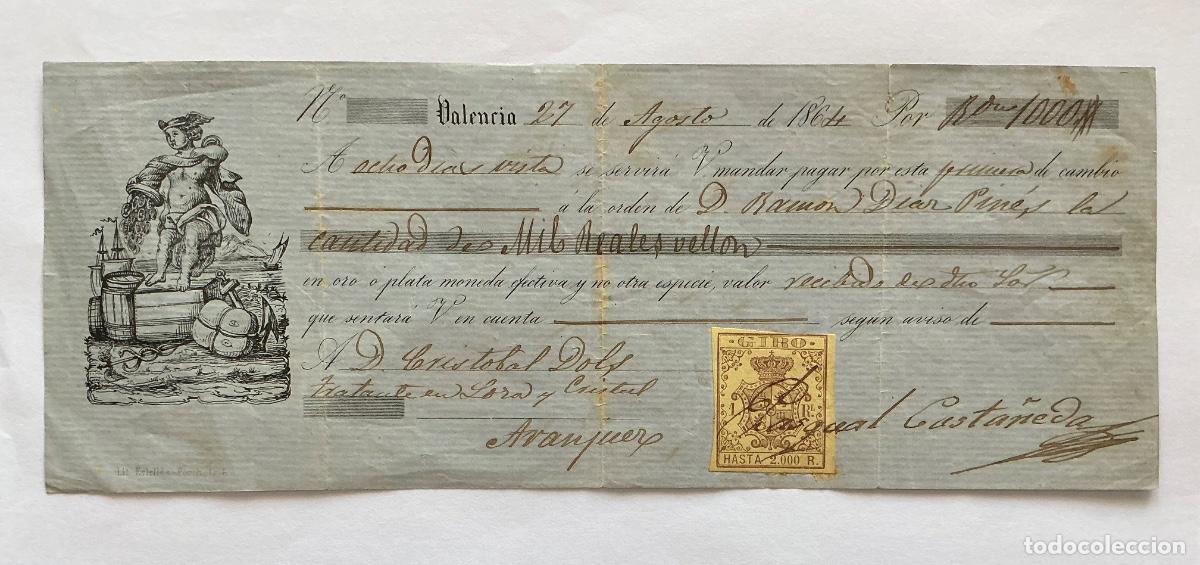 Nº Valencia 27 de Agosto de 1864 Por Rvon 1000
A ocho dias vista se servirá V mandar pagar por esta primera de cambio
á la orden de D. Ramon Diaz Pinés la
cantidad de Mil Reales vellon
en oro ó plata moneda efectiva y no otra especie, valor recibido de dho Sor
que sentará V en cuenta segun aviso de
A D. Cristobal Dols
tratante en Loza y Cristal
Aranjuez
GIRO
1 RL
HASTA 2.000 R.
Pasqual Castañeda
Lit.
todocoleccion